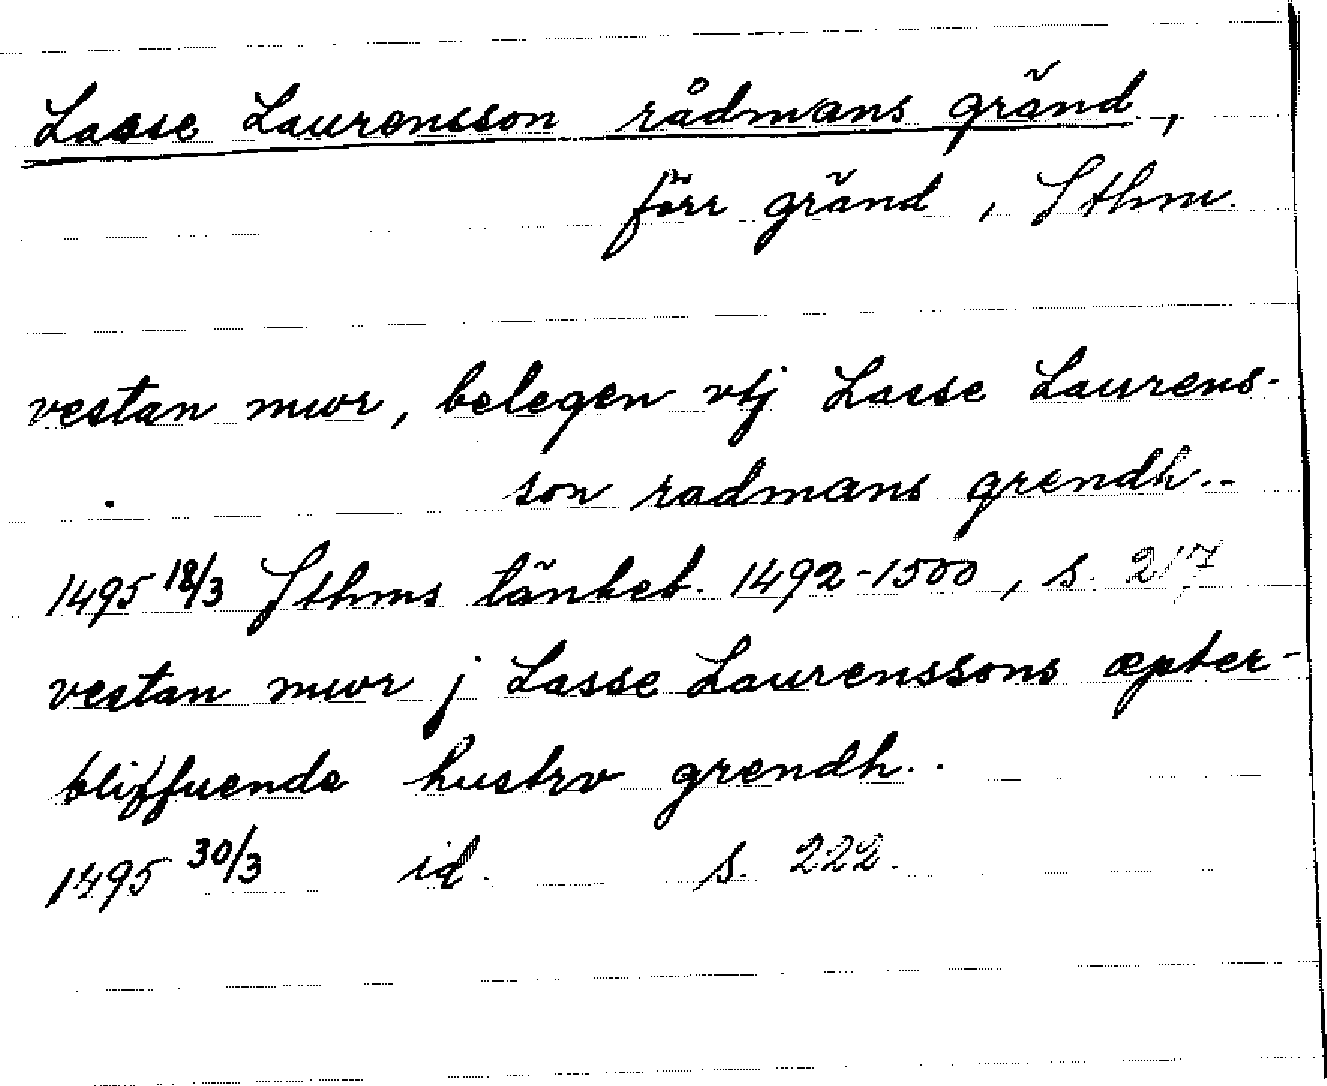 Lasse Laurensson rådmans gränd,
förr gränd, Sthm.
vestan mwr, belegen vtj Lasse Laurens-
son radmans grendh..
1495 18/3 Sthms tänkeb. 1492-1500, s. 217
vestan mwr j Lasse Laurenssons æpter-
bliffuende hustrv grendh..
1495 30/3 id. s. 222.